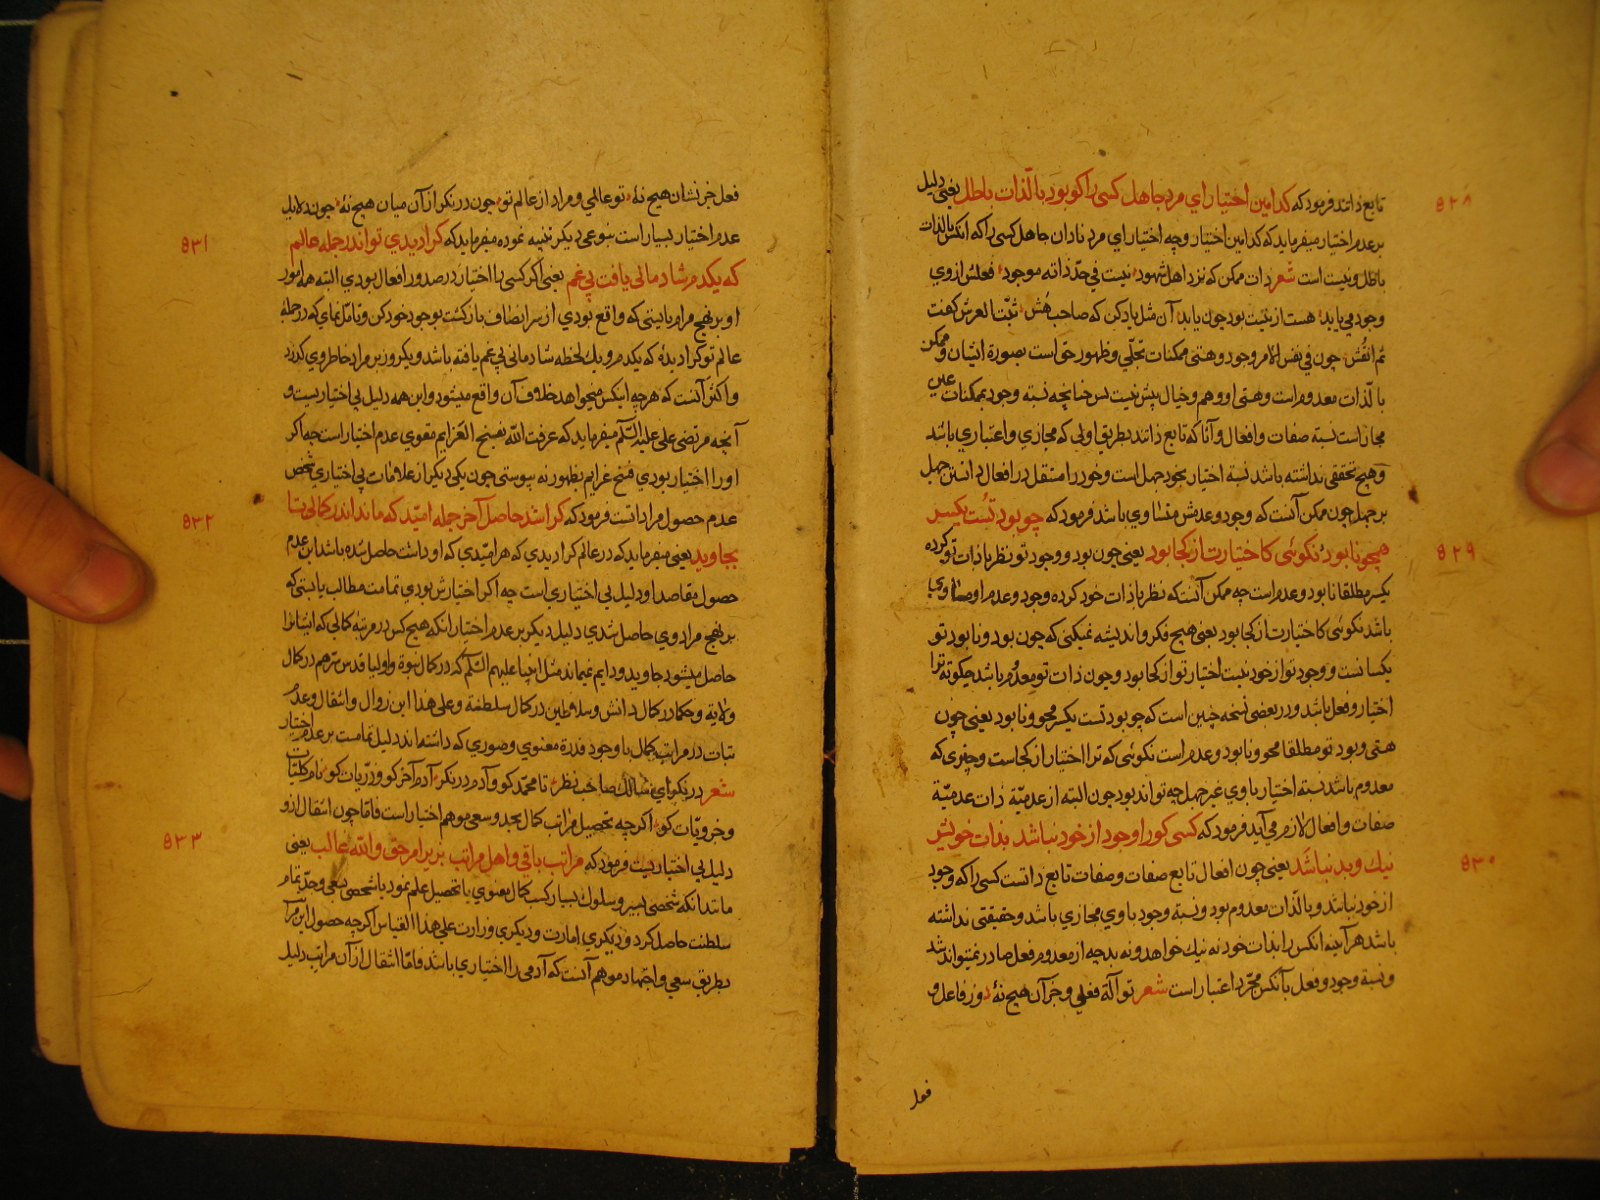 تابع ذاتند فرمود که کدامین اختیار ای مرد جاهل کسی را کو بود بالذات باطل یعنی دلیل
۵۲۸
بر عدم اختیار میفرماید که کدامین اختیار وچه اختیار ای مرد نادان جاهل کسی را که انکس بالذات
باطل ونیست است شعر ذات ممکن که نزد اهل شهود نیست فی حد ذاته موجود فعلش از وی
وجود می یابد هست از نیست بود چون یابد آن مثل یاد کن که صاحب هش ثبت العرش گفت
ثم انقش چون فی نفس الامر وجود وهستی ممکنات تجلی وظهور حق است بصورة ایشان وممکن
بالذات معدوم است وهستی او وهم وخیال بیش نیست پس چنانچه نسبة وجود بممکنات عین
مجاز است نسبة صفات وافعال وآنها که تابع ذاتند بطریق اولی که مجازی واعتباری باشد
وهیچ تحققی نداشته باشد نسبة اختیار بخود جهل است وخود را مستقل در افعال دانستن جهل
بر جهل چون ممکن آنست که وجود وعدمش متساوی باشد فرمود که چو بود تست یکسر
همچو نابود نگوئی کاختیارت از کجا بود یعنی چون بود ووجود تو نظر باذات تو کرده
۵۲۹
یکسر مطلقا نابود وعدم است چه ممکن آنست که نظر باذات خود کرده وجود وعدم او متساوی
باشد نگوئی کاختیارت از کجا بود یعنی هیچ فکر واندیشه نمیکنی که چون بود ونابود تو
یکسانست ووجود تو از خود نیست اختیار تو از کجا بود وچون ذات تو معدوم باشد چگونه ترا
اختیار وفعل باشد ودر بعضی نسخه چنین است که چو بود تست یکسر محو ونابود یعنی چون
هستی وبود تو مطلقا محو ونابود وعدم است نگوئی که ترا اختیار از کجاست وچیزی که
معدوم باشد نسبة اختیار باوی غیر جهل چه تواند بود چون البته از عدمیّة ذات عدمیّة
صفات وافعال لازم می آید فرمود که کسی کورا وجود از خود نباشد بذات خویش
نیک وبد نباشد یعنی چون افعال تابع صفات وصفات تابع ذاتست کسی را که وجود
۵۳۰
از خود نباشد وبالذات معدوم بود ونسبة وجود باوی مجازی باشد وحقیقتی نداشته
باشد هرآینه انکس را بذات خود نه نیک خواهد ونه بد چه از معدوم فعل صادر نمیتواند شد
ونسبة وجود وفعل بآنکس مجرّد اعتبار است شعر تو آلة فعلی وجز آن هیچ نۀ دور فاعل و
فعل
فعل جز نشان هیچ نۀ تو عالمی ومراد از عالم تو چون در نگر از آن میان هیچ نۀ چون دلایل
عدم اختیار بسیار است بنوعی دیگر تنبیه نموده میفرماید که کرا دیدی تو اندر جمله عالم
۵۳۱
که یکدم شادمانی یافت بی غم یعنی اگر کسی را اختیار در صدور افعال بودی البته همه امور
او بر نهج مرام بایستی که واقع بودی از سر انصاف بازگشت بوجود خود کن وتأمل نمای که در جمله
عالم تو کرا دیدۀ که یکدم ویک لحظه شادمانی بی غم یافته باشد ویکروز بر مراد خاطر وی گذرد
واکثر آنست که هرچه اینکس میخواهد خلاف آن واقع میشود واین همه دلیل بی اختیاریست و
آنچه مرتضی علی علیه السّلم میفرماید که عرفت الله بفسخ العزایم مقوی عدم اختیار است چه اگر
او را اختیار بودی فسخ عزایم بظهور نه پیوستی چون یکی دیگر از علامات بی اختیاری شخص
عدم حصول مراد اتست فرمود که کرا شد حاصل آخر جمله امید که ماند اندر کمالی تا
۵۳۲
بجاوید یعنی میفرماید که در عالم کرا دیدی که هر امیدی که او داشت حاصل شده باشد این عدم
حصول مقاصد او دلیل بی اختیاری است چه اگر اختیارش بودی تمامت مطالب بایستی که
بر نهج مراد وی حاصل شدی دلیل دیگر بر عدم اختیار انکه هیچ کس در مرتبۀ کمالی که ایشانرا
حاصل میشود جاوید ودایم نمیماند مثل انبیا علیهم السّلم که در کمال نبوة واولیا قدس سرّهم در کمال
ولایة وحکما در کمال دانش وسلاطین در کمال سلطنة وعلی هذا این زوال وانتقال وعدم
ثبات در مراتب کمال با وجود قدرة معنوی وصوری که داشته اند دلیل تمامست بر عدم اختیار
شعر در نگر ای سالک صاحب نظر تا محمد کو وآدم در نگر آدم آخر کو وذریات کو نام کلیات
وجزویات کو اگرچه تحصیل مراتب کمال بجد وسعی موهم اختیار است فاما چون انتقال ازو
دلیل بی اختیاریست فرمود که مراتب باقی واهل مراتب بزیر امر حق والله غالب یعنی
۵۳۳
مانند انکه شخصی بسیر وسلوک بسیار کسب کمال معنوی یا تحصیل علم نمود یا شخصی بسعی وجد تمام
سلطنت حاصل کرد ودیگری امارت ودیگری وزارت علی هذا القیاس اگرچه حصول این مراتب
بطریق سعی واجتهاد موهم آنست که آدمی را اختیاری باشد فامّا انتقال از آن مراتب دلیل